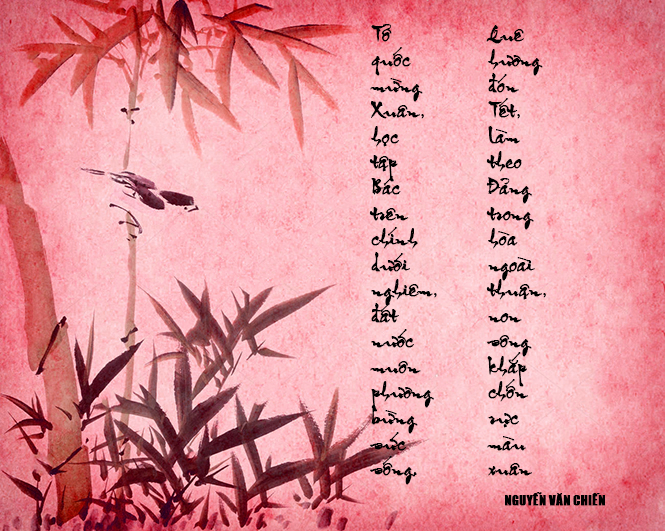 Tổ
quốc
mừng
Xuân,
học
tập
Bác
trên
chính
dưới
nghiêm,
đất
nước
muôn
phương
bừng
sức
sống.
Quê
hương
đón
Tết,
làm
theo
Đảng
trong
hòa
ngoài
thuận,
non
sông
khắp
chốn
rực
màu
xuân
NGUYỄN VĂN CHIẾN